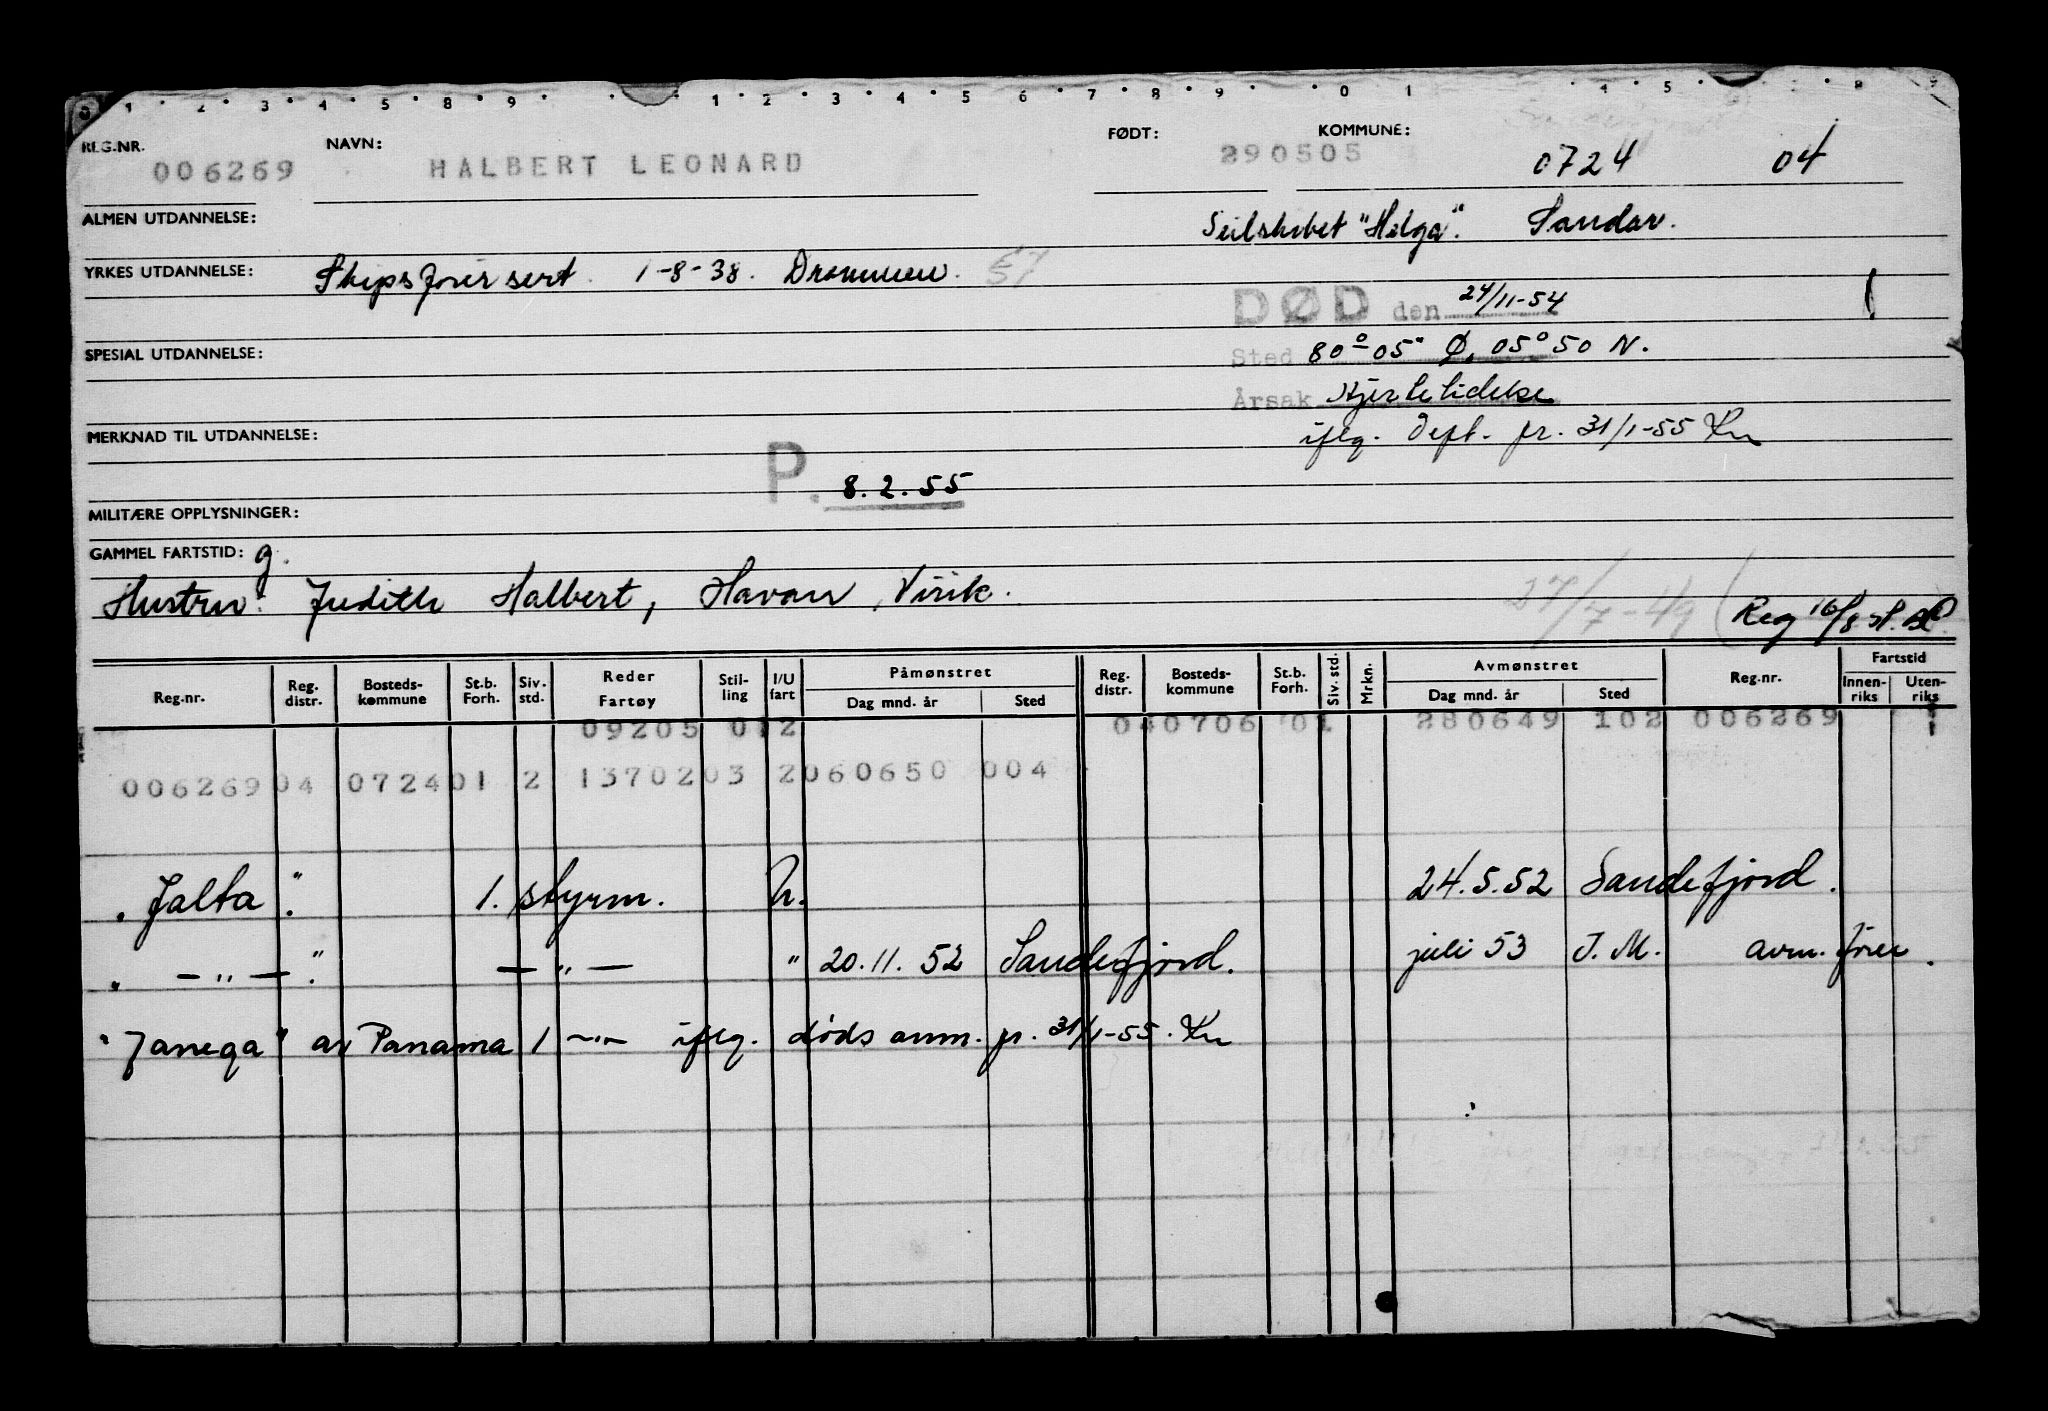 REG.NR. 006269 NAVN: HALBERT LEONARD FØDT: 290505 KOMMUNE: 0724 04
ALMEN UTDANNELSE: Seilskibet "Helga". Sandar.
YRKES UTDANNELSE: Skipsfører sert. 1-8-38. Drammen. 57
DØD den 24/11-54
SPESIAL UTDANNELSE: Sted 80° 05" Ø, 05° 50 N.
Årsak Hjertelidelse
MERKNAD TIL UTDANNELSE: iflg. Dept. pr. 31/1-55 Kn
P. 8.2.55
MILITÆRE OPPLYSNINGER:
GAMMEL FARTSTID: g.
Hustru: Judith Halbert, Havan, Virik. 27/7-49 Reg 16/8
Reg.nr. Reg. distr. Bosteds-kommune St.b. Forh. Siv. std. Reder Fartøy Stil-ling I/U fart Påmønstret Dag mnd. år Sted Reg. distr. Bosteds-kommune St.b. Forh. Siv. std. Mrkn. Avmønstret Dag mnd. år Sted Reg.nr. Fartstid Innen-riks Uten-riks
09205 012 040706 01 280649 102 006269
006269 04 0724 01 2 13702 03 2 060650 004
"Jalta". 1. styrm. U. 24.5.52 Sandefjord.
" — " — ". — " — " 20.11.52 Sandefjord. juli 53 I.M. avm. fører.
"Janega" av Panama 1 —"— iflg. døds anm. pr. 31/1-55. Kn